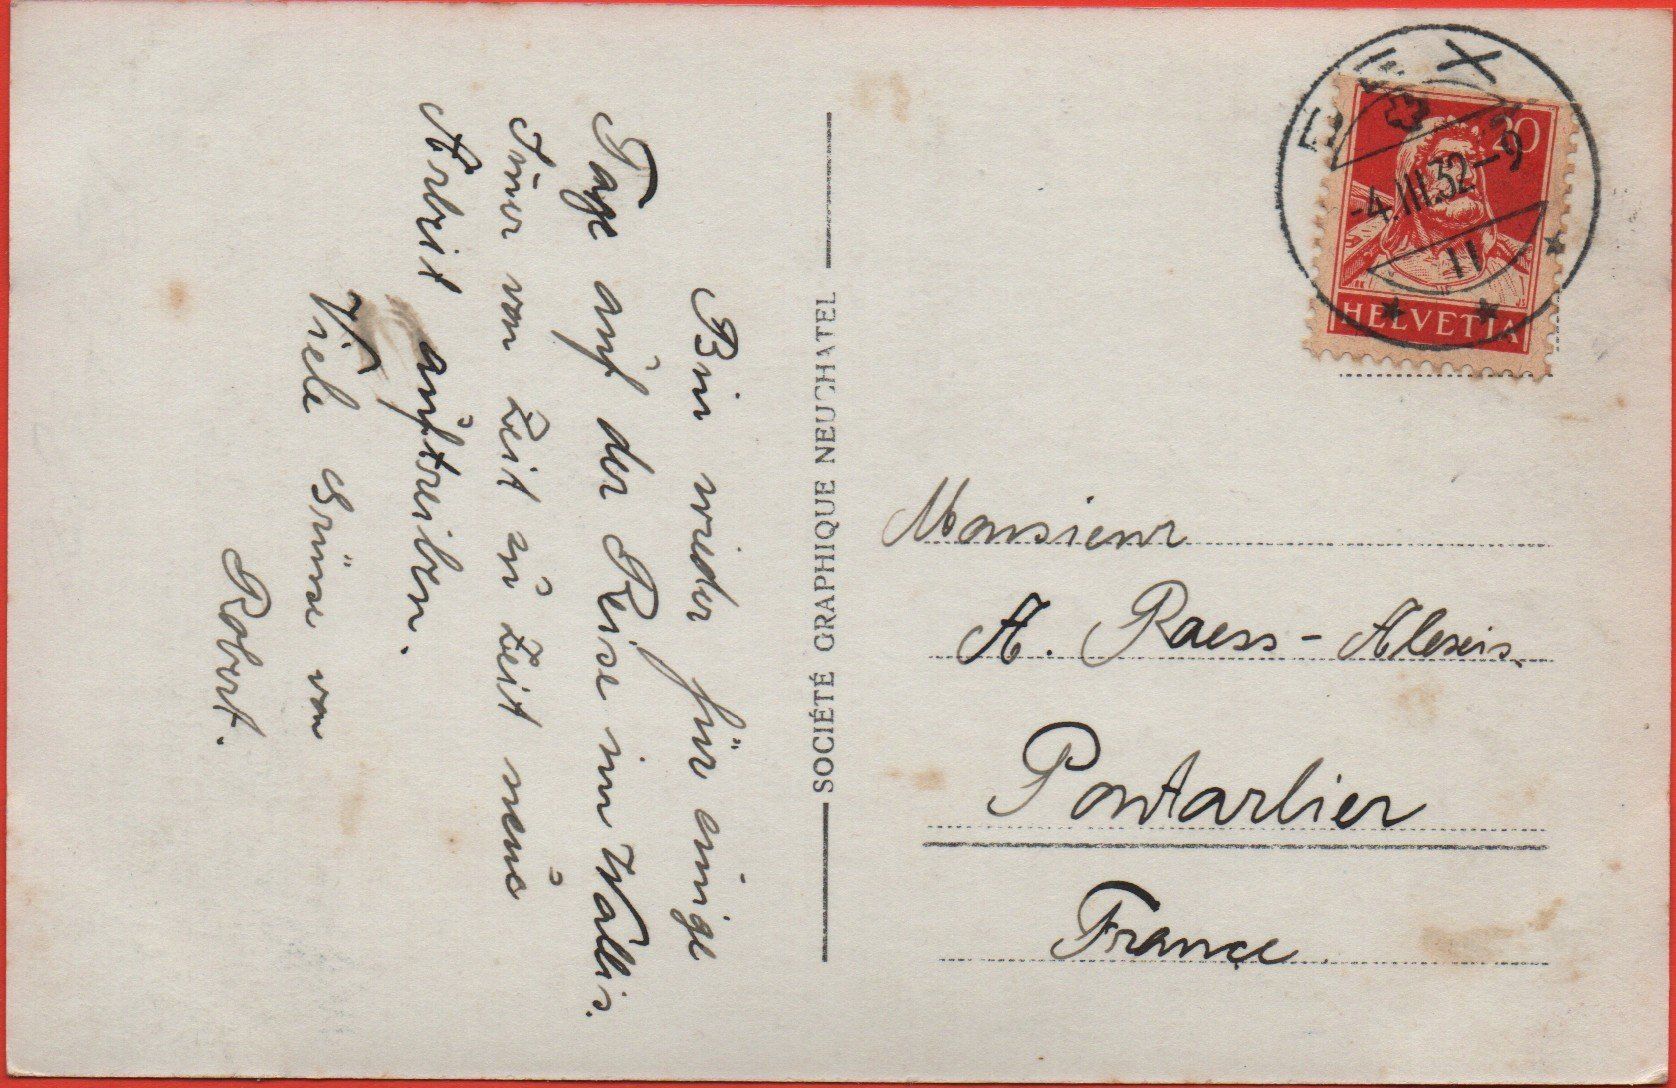 Bin wieder für einige
Tage auf der Reise im Wallis.
Imer von Zeit zu Zeit neue
Arbeit auftreiben.
Viele Grüsse von
Robert.
SOCIÉTÉ GRAPHIQUE NEUCHATEL
BEX
-4.III.32-9
11
20
HELVETIA
Monsieur
A. Raess-Alexis.
Pontarlier
France.